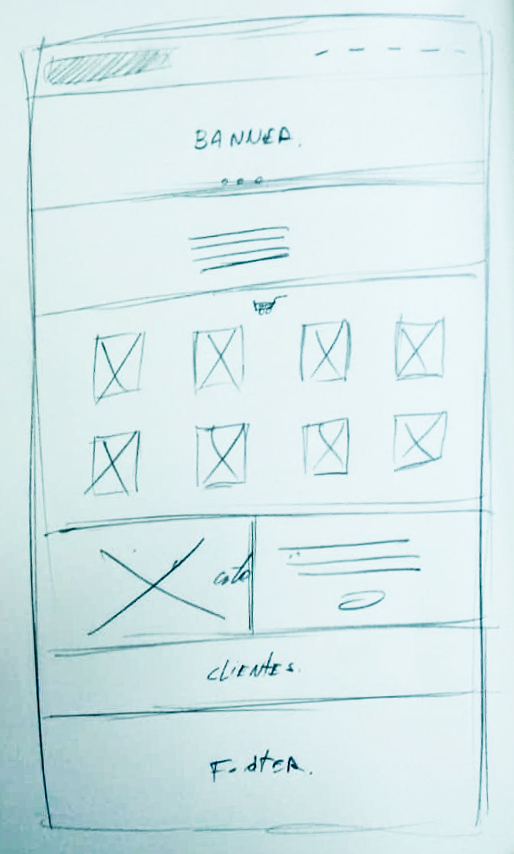 BANNER.
CLIENTES.
FOOTER.